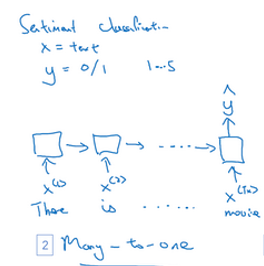 Sentiment classification
x = text
y = 0/1 1...5
ŷ
x^(1) x^(2) x^(Tx)
There is ...... movie
2 Many-to-one